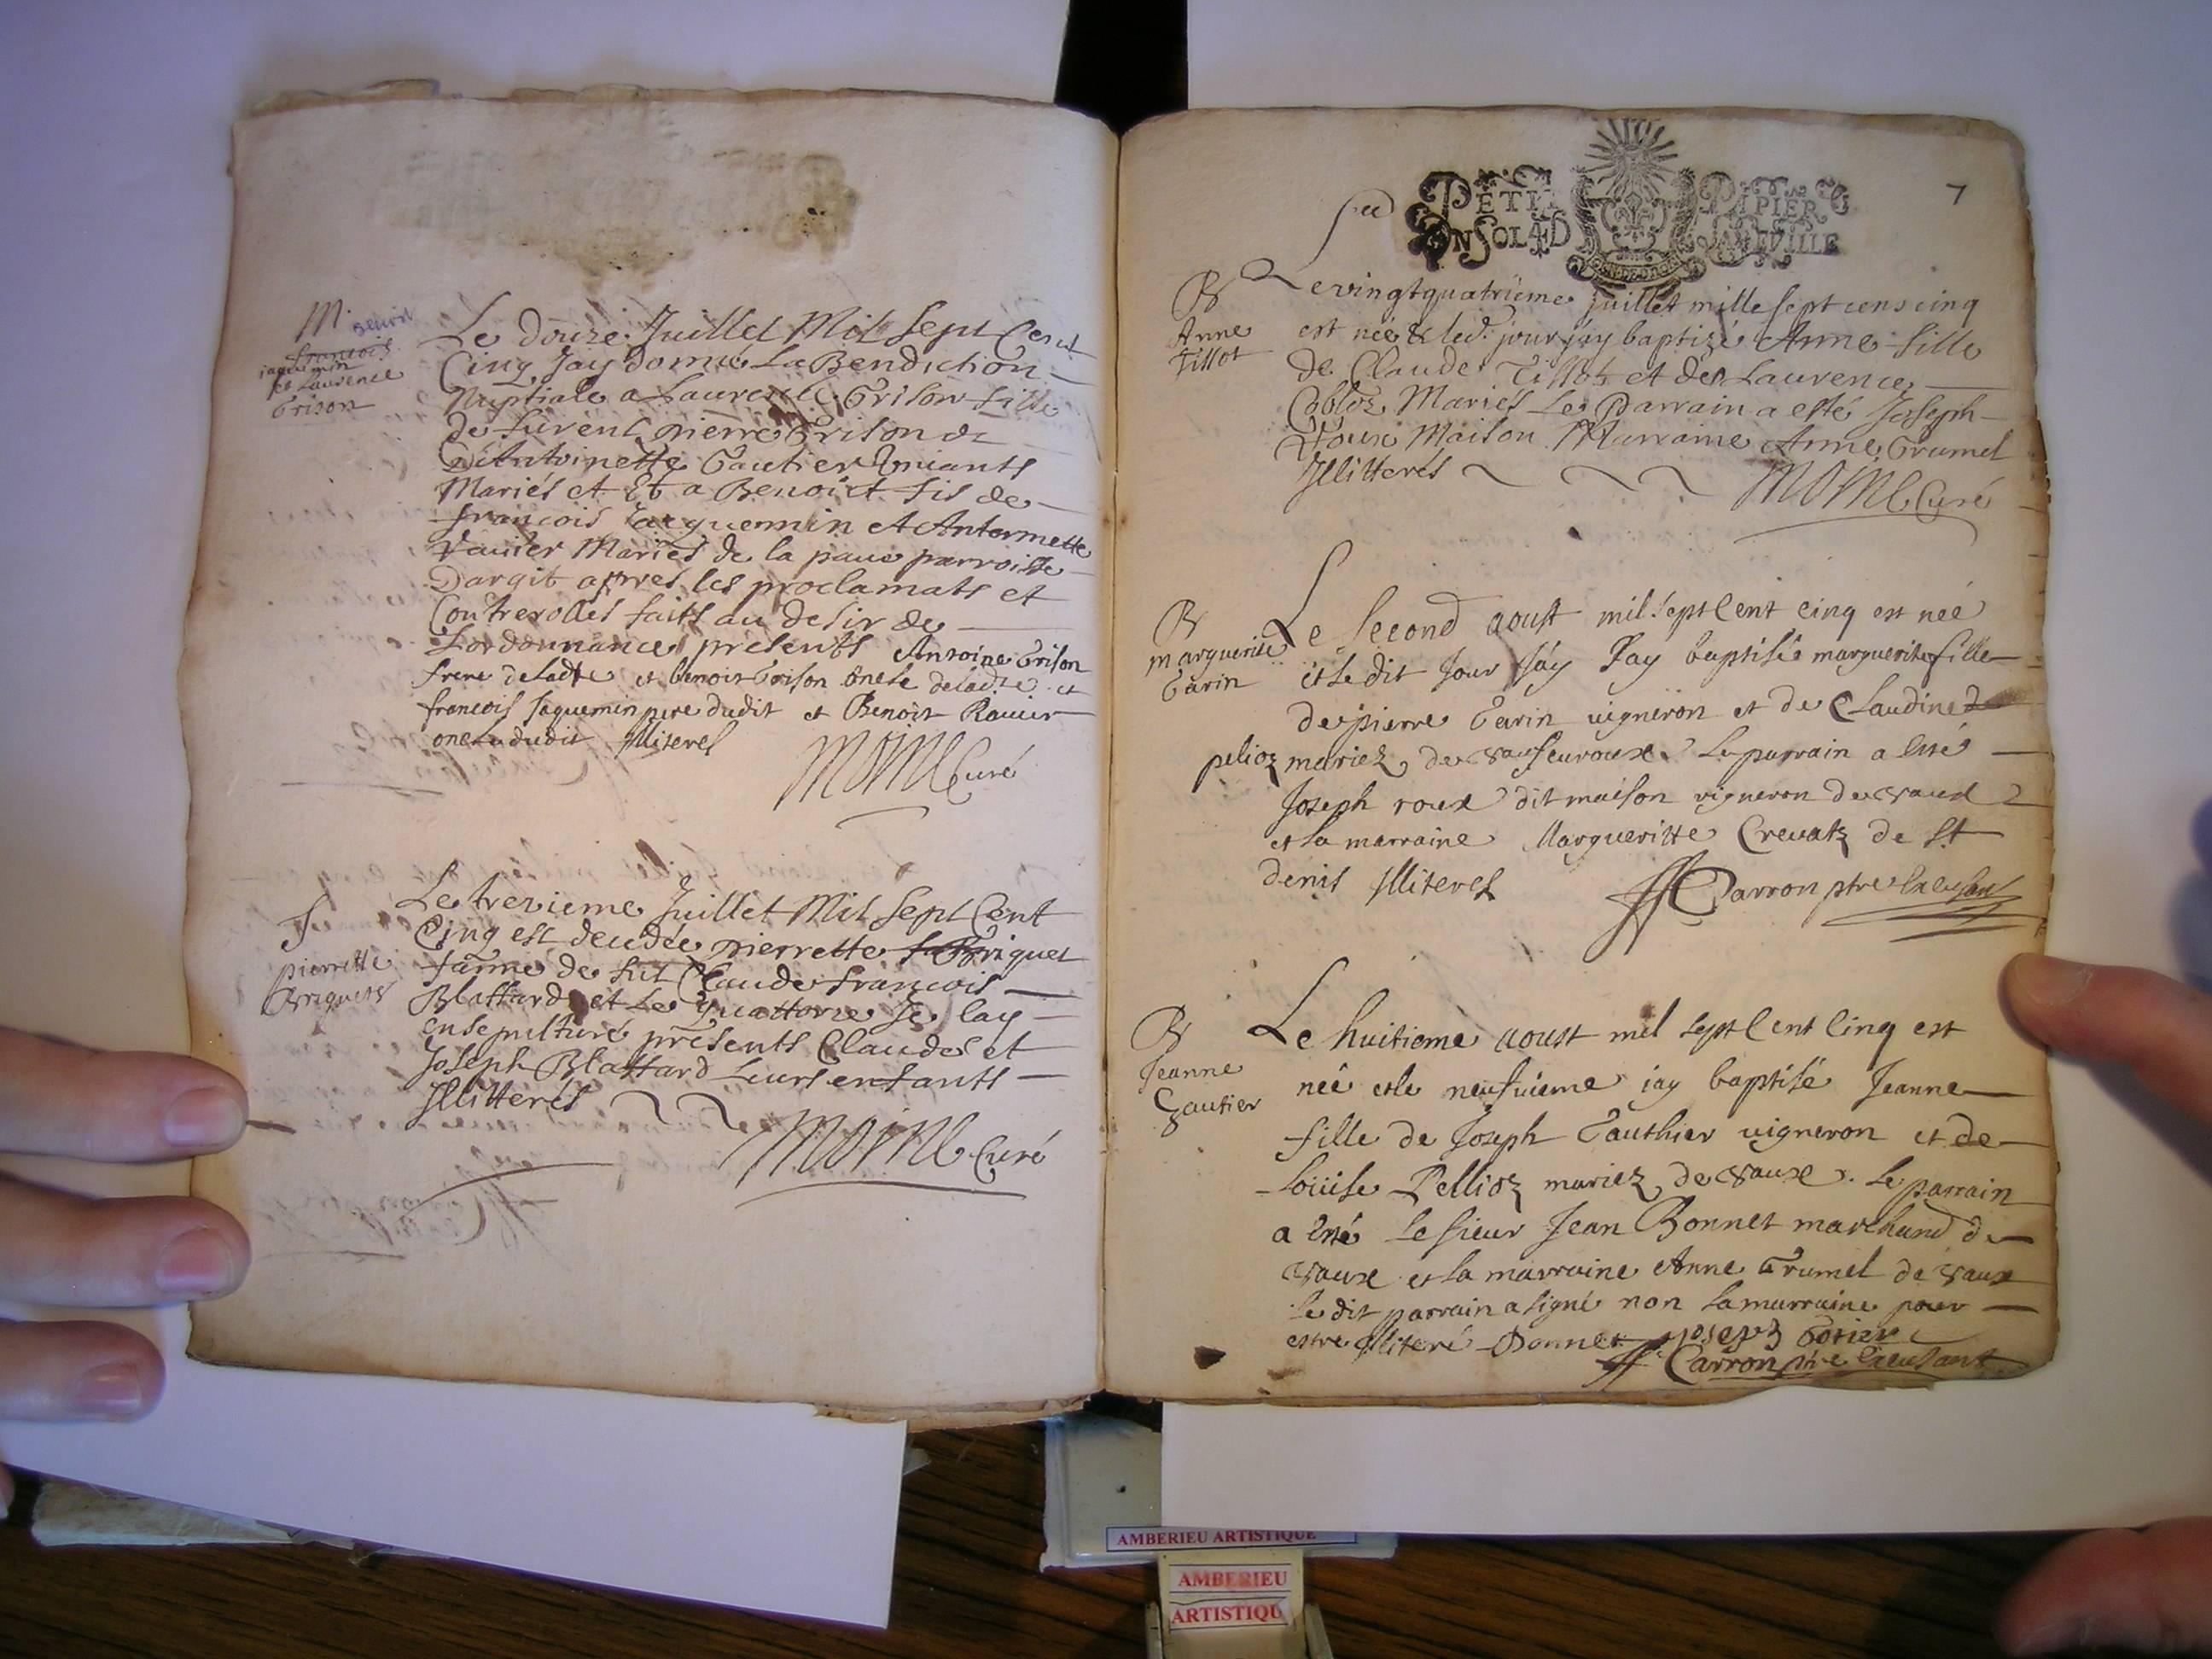 M.
Benoit
françois
iaquemin
et Laurence
Grison
Le Douze Juillet Mil Sept Cent
Cinq Jay donné La Bendiction
Nuptiale a Laurence Grison fille
De furent pierre Grison et
D'Antoinette Gautier Vivants
Mariés et Et a Benoict fis de
françois Jacquemin et Antoinette
Mariés de la parroisse
Dargit apres les proclamats et
Controrolles faits au desir de
Lordonnance presents Antoine Grison
frere de ladte et benoit Grison oncle de ladte et
francois Jaquemin pere dudit et Benoit Rauier
oncle dudit Illiterés
MOINE Curé
S
pierrette
Briquet
Le trezieme Juillet Mil Sept Cent
Cinq est decedée pierrette Briquet
famme de fut Claude francois
Blattard et Le quattorze Je lay
ensepulturé presents Claude et
Joseph Blattard Leurs enfants
Illitterés
MOINE Curé
7
PETIT PAPIER
UN SOL 4 D LA FEUILLE
B
Anne
Tillot
Le vingt quatrieme juillet mille sept cens cinq
est née & led. jour jay baptizé Anne fille
de Claude Tillot et de Laurence
Cobloz Mariés Le Parrain a esté Joseph
Roux Maison Marraine Anne Grumel
Illitterés MOINE Curé
B
marguerite
Garin
Le second aoust mil sept Cent cinq est née
et le dit Jour Jay Jay baptisée marguerite fille
de pierre Garin uigneron et de Claudine
pelioz mariez de Le parrain a esté
Joseph roux dit maison vigneron de vaux
et la marraine Margueritte Crevatz de St
denis Illiterés Carron ptre
B
Jeanne
Gautier
Le huitieme aoust mil sept Cent Cinq est
née et le neufuieme jay baptisé Jeanne
fille de Joseph Gauthier uigneron et de
Loüise Pellioz mariez de vaux. Le parrain
a esté Le sieur Jean Bonnet marchand de
vaux et la marraine Anne Grumel de vaux
le dit parrain a signé non la marraine pour
estre Illiteré Bonnet joseph Gotier
Carron ptre
AMBERIEU ARTISTIQUE
AMBERIEU
ARTISTIQU